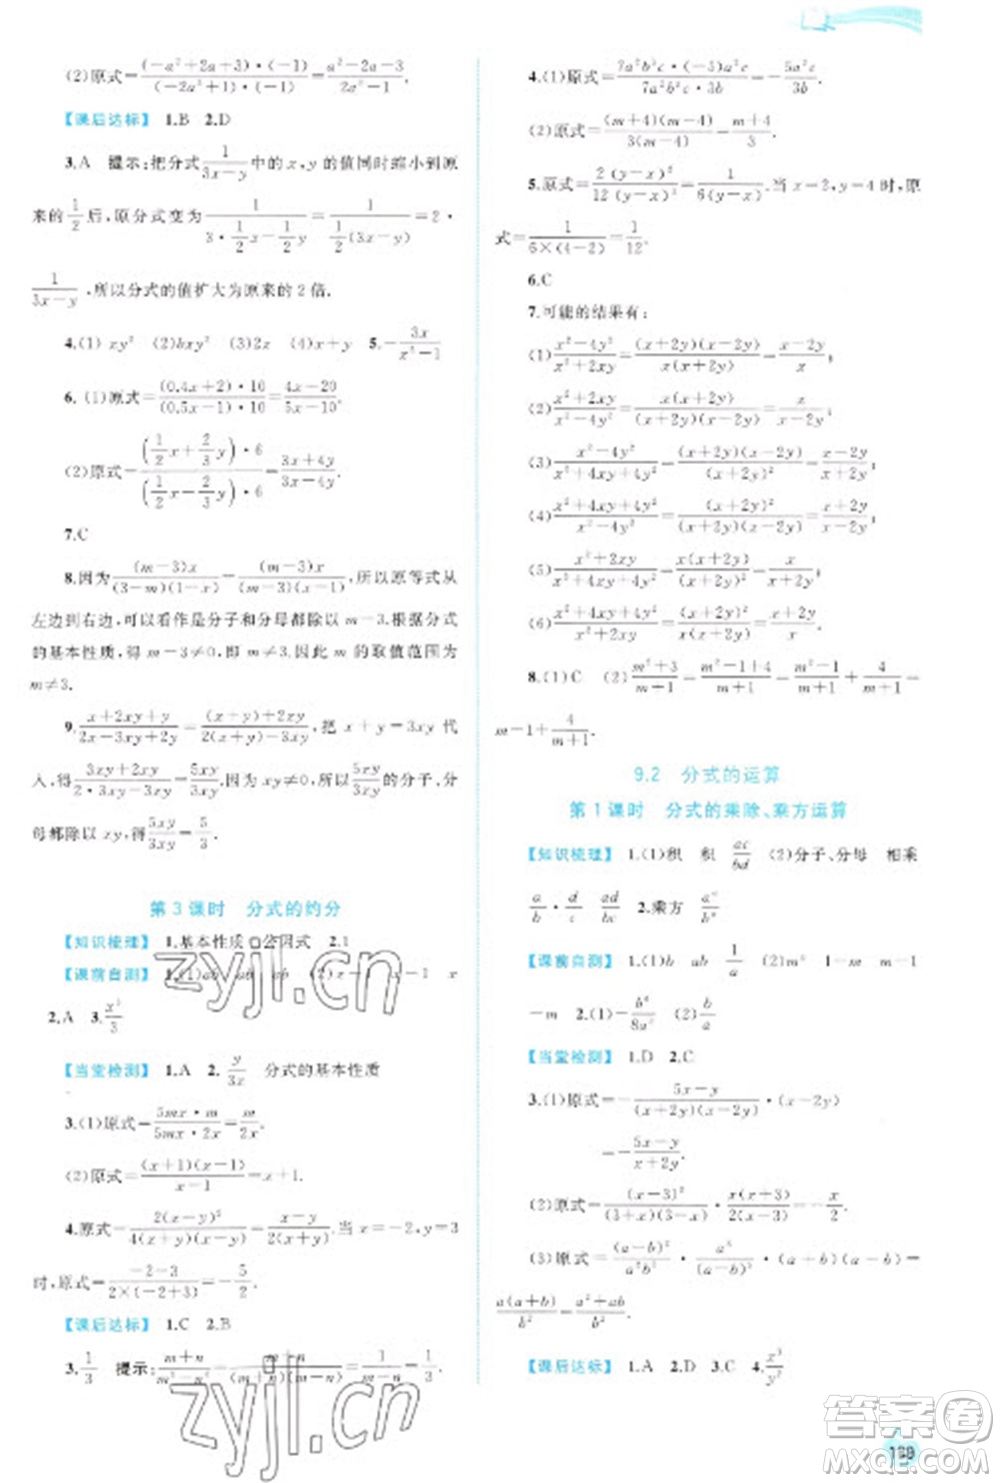 (2)原式=(-a²+2a+3)·(-1)/(-2a²+1)·(-1)=a²-2a-3/2a²-1.
【课后达标】 1.B 2.D
3.A 提示:把分式1/3x-y中的x,y的值同时缩小到原
来的1/2后,原分式变为1/(3·1/2x-1/2y)=1/(3x-y)·2
1/3x-y,所以分式的值扩大为原来的2倍.
4.(1)xy² (2)bxy² (3)2x (4)x+y 5.-3x/x²-1
6.(1)原式=(0.4x+2)·10/(0.5x-1)·10=4x-20/5x-10.
(2)原式=(1/2x+2/3y)·6/(1/2x-2/3y)·6=3x+4y/3x-4y.
7.C
8.因为(m-3)x/(3-m)(1-x)=(m-3)x/(m-3)(x-1),所以原等式从
左边到右边,可以看作是分子和分母都除以m-3.根据分式
的基本性质,得m-3≠0,即m≠3.因此m的取值范围为
m≠3.
9.x+2xy+y/2x-3xy+2y=(x+y)+2xy/2(x+y)-3xy,把x+y=3xy代
入,得3xy+2xy/2×3xy-3xy=5xy/3xy.因为xy≠0,所以5xy/3xy的分子,分
母都除以xy,得5xy/3xy=5/3.
第3课时 分式的约分
【知识梳理】 1.基本性质 公因式 2.1
【课前自测】 1.(1)ab ab ab (2)x-1 x-1 x
2.A 3.x²/3
【当堂检测】 1.A 2.y/3x 分式的基本性质
3.(1)原式=5mx·m/5mx·2x=m/2x.
(2)原式=(x+1)(x-1)/x-1
4.原式=2(x-y)²/4(x+y)(x-y)=x-y/2(x+y).当x=-2,y=3
时,原式=-2-3/2×(-2+3)=-5/2.
【课后达标】 1.C 2.B
3.1/3 提示:m+n/m²-n²=m+n/(m+n)(m-n)=1/m-n
4.(1)原式=7a²b²c·(-5)a²c/7a²b²c·3b=-5a²c/3b.
(2)原式=(m+4)(m-4)/3(m-4)=m+4/3.
5.原式=2(y-x)²/12(y-x)³=1/6(y-x).当x=2,y=4时,原
式=1/6×(4-2)=1/12.
6.C
7.可能的结果有:
(1)x²-4y²/x²+2xy=(x+2y)(x-2y)/x(x+2y)=x-2y/x;
(2)x²+2xy/x²-4y²=x(x+2y)/(x+2y)(x-2y)=x/x-2y;
(3)x²-4y²/x²+4xy+4y²=(x+2y)(x-2y)/(x+2y)²=x-2y/x+2y;
(4)x²+4xy+4y²/x²-4y²=(x+2y)²/(x+2y)(x-2y)=x+2y/x-2y;
(5)x²+2xy/x²+4xy+4y²=x(x+2y)/(x+2y)²=x/x+2y;
(6)x²+4xy+4y²/x²+2xy=(x+2y)²/x(x+2y)=x+2y/x.
8.(1)C (2)m²+3/m+1=m²-1+4/m+1=m²-1/m+1+4/m+1=
m-1+4/m+1.
9.2 分式的运算
第1课时 分式的乘除、乘方运算
【知识梳理】 1.(1)积 积 ac/bd (2)分子、分母 相乘
a/b·d/c ad/bc 2.乘方 aⁿ/bⁿ
【课前自测】 1.(1)b ab 1/a (2)m² 1-m m-1
-m 2.(1)-b⁶/8a³ (2)b/a
【当堂检测】 1.D 2.C
3.(1)原式=-5x-y/(x+2y)(x-2y)·(x-2y)
=-5x-y/x+2y.
(2)原式=(x-3)²/(3+x)(3-x)·x+3/2(x-3)=-x/2.
(3)原式=(a-b)²/b²·a³/(a-b)³·(a+b)(a-b)=
a(a+b)/b²=a²+ab/b².
【课后达标】 1.A 2.D 3.C 4.x³/y²
zyjl.cn
zyjl.cn
答案卷
MXQE.COM